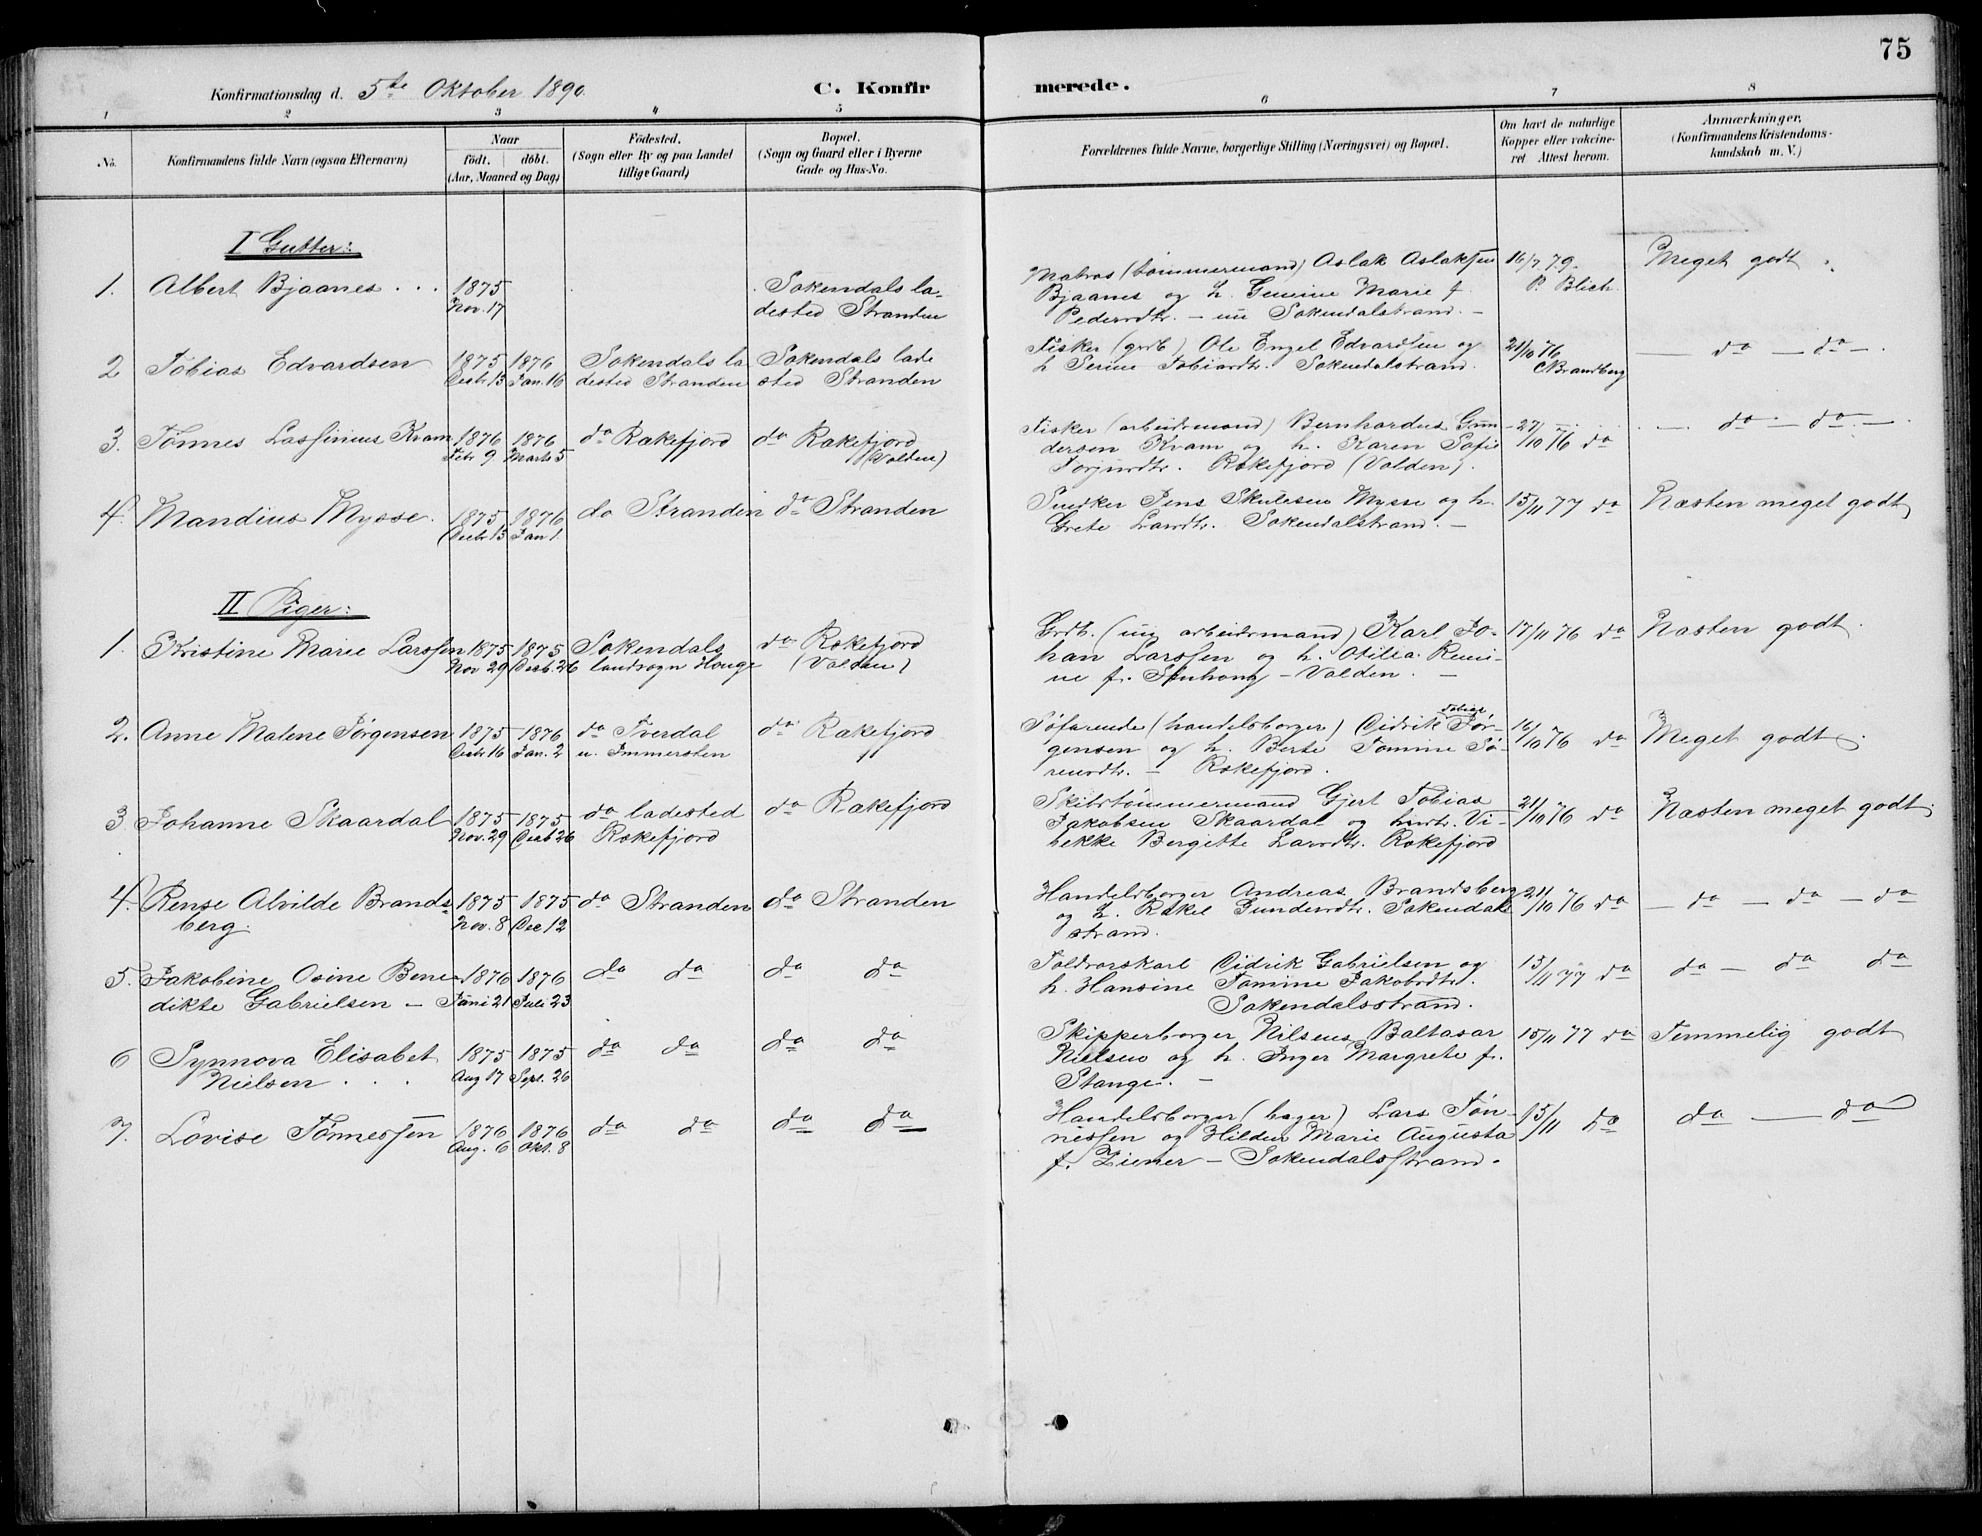 75
Konfirmationsdag d. 5te Oktober 1890.
C. Konfirmerede.
1 2 3 4 5 6 7 8
No.
Konfirmandens fulde Navn (ogsaa Efternavn)
Naar
født. døbt.
(Aar, Maaned og Dag)
Fødested.
(Sogn eller By og paa Landet
tillige Gaard)
Bopæl.
(Sogn og Gaard eller i Byerne
Gade og Hus-No.
Forældrenes fulde Navne, borgerlige Stilling (Næringsvei) og Bopæl.
Om havt de naturlige
Kopper eller vakcine-
ret Attest herom.
Anmærkninger.
(Konfirmandens Kristendoms-
kundskab m. V.)
I Gutter:
1. Albert Bjaanes . . .
1875
Nov. 17
Sokendals la-
dested Stranden
Matros (tømmermand) Aslak Aslaksen
Bjaanes og h. Gunine Marie f.
Pedersdtr. – nu Sokendalstrand. –
16/7 79.
P. Blich.
Meget godt.
2 Tobias Edvardsen
1875
Decbr. 13
1876
Jan. 16
Sokendals la
dested Stranden
Sokendals lade
sted Stranden
Fisker (grdb.) Ole Engel Edvardsen og
h. Serine Tobiasdtr. Sokendalstrand.
21/10 76
C Brandberg
— do — do —.
3. Tønnes Lassinius Kvam
1876
Febr 9
1876
Marts 5
do Rækefjord
do Rækefjord
(Valden)
Fisker (arbeidsmand) Bernhardus Gun
dersen Kvam og h. Karen Sofie
Torjursdtr. Rækefjord (Valden).
27/10 76 do
— do — do —.
4. Mandius Mysse.
1875
Decbr 15
1876
Jan 1
do Stranden
do Stranden
Snedker Jens Skulesen Mysse og h.
Grete Larsdtr. Sokendalstrand. –
15/11 77 do
Næsten meget godt
II Piger:
1. Kristine Marie Larssen
1875
Nov 29
1875
Decb. 26
Sokendals
landsogn Houge
do Rækefjord
(Valden)
Grdb. (nu arbeidsmand) Karl Jo-
han Larssen og h. Otilia
ne f. – Valden. –
17/11 76 do
Næsten godt
2. Anne Malene Jørgensen
1875
Decbr 16
1876
Jan. 2
do Tverdal
u. Immersten
do Rækefjord
Søfarende (handelsborger) Didrik Tobias Jør-
gensen og h. Berte Tomine Sø-
rensdtr. – Rækefjord.
16/10 76 do
Meget godt.
3 Johanne Skaardal
1875
Nov. 29
1875
Decb 26
do ladested
Rækefjord
do Rækefjord
Skibstømmermand Gjert Tobias
Jakobsen Skaardal og hustr. Vi-
bekke Bergitte Larsdtr. Rækefjord
21/10 76 do
Næsten meget godt.
4. Rense Alvilde Brands-
berg.
1875
Nov. 8
1875
Dec 12
do Stranden
do Stranden
Handelsborger Andreas Brandsberg
og h. Rakel Gundersdtr. Sokendals
strand.
21/10 76 do
— do — do — do
5. Jakobine Osine Bene-
dikte Gabrielsen –
1876
Juni 21
1876
Juli 23
do do
do do
Toldvorskarl Didrik Gabrielsen og
h. Hansine Tomine Jakobsdtr.
Sokendalsstrand.
13/11 77 do
do — do do
6 Synnova Elisabet
Nielsen . . .
1875
Aug 17
1875
Sept. 26
do do
do do
Skipperborger Nilsens Baltasar
Nielsen og h. Inger Margrete f.
Stange. –
15/11 77 do
Temmelig godt
7. Lovise Tønnessen
1876
Aug. 6
1876
Okt. 8
do do
do do
Handelsborger (bager) Lars Tøn-
nessen og Hilden Marie Augusta
f. Ziener – Sokendalsstrand.
15/11 do
do — do